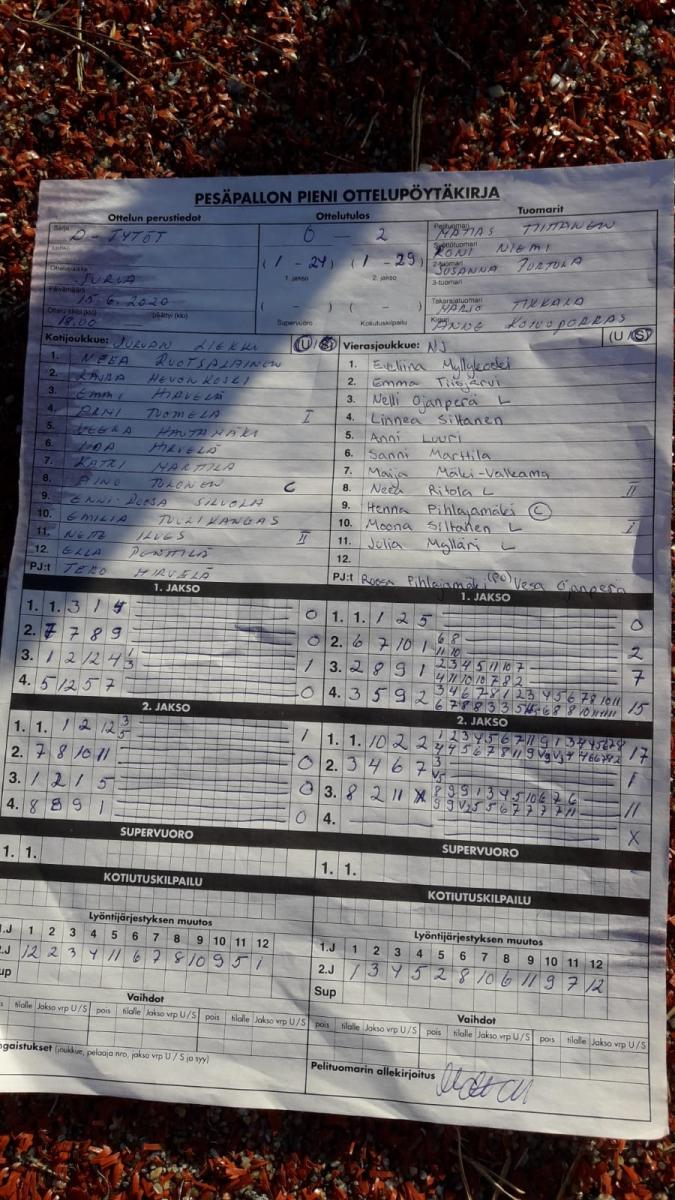 PESÄPALLON PIENI OTTELUPÖYTÄKIRJA
Ottelun perustiedot Ottelutulos Tuomarit
Sarja
D-TYTÖT
0 – 2
Pelituomari
MATIAS TIITTANEN
Syöttötuomari
RONI NIEMI
Ottelupaikka
JURVA
(1 – 24) (1 – 29)
1. jakso 2. jakso
2-tuomari
SUSANNA TURTOLA
3-tuomari
Päivämäärä
15.6.2020
(   –   ) (   –   )
Takarajatuomari
MARJO TIKKALA
Ottelu alkoi (klo) päättyi (klo)
18.00
Supervuoro Kotiutuskilpailu
Kirjuri
ANNE KOIVUPORRAS
Kotijoukkue: JURVAN LIEKKI (U/S)
1. NEEA RUOTSALAINEN
2. HEVONKOSKI
3. EMMI HIRVELÄ
4. TUOMELA I
5. VEERA HAUTAMÄKI
6. IIDA HIRVELÄ
7. KATRI MARTTILA
8. AINO TURUNEN C
9. ENNI-ROOSA SILVOLA
10. EMILIA TULLIKANGAS
11. ILVES II
12. ELLA PENTTILÄ
PJ:t TERO HIRVELÄ
Vierasjoukkue: NJ (U/S)
1. Eveliina Myllykoski
2. Emma Tiisjärvi
3. Nelli Ojanperä L
4. Linnea Siltanen
5. Anni Luuri
6. Sanni Marttila
7. Maija Mäki-Valkama
8. Neea Ritola L II
9. Henna Pihlajamäki C
10. Moona Siltanen L I
11. Julia Mylläri L
12.
PJ:t Roosa Pihlajamäki (PO) Vesa Ojanperä
1. JAKSO
1. 1. 3 1 4 0
2. 7 7 8 9 0
3. 1 2 12 4 1 3 1
4. 5 12 5 7 0
1. JAKSO
1. 1. 1 2 5 0
2. 6 7 10 1 6 8 2
11 10
3. 2 8 9 1 2 3 4 5 11 10 7 7
4 11 10 10 7 8 2
4. 3 5 9 2 3 4 6 7 8 1 2 3 4 5 6 7 8 10 11 15
2. JAKSO
1. 1. 1 2 12 3 5 1
2. 7 8 10 11 0
3. 1 2 1 5 0
4. 8 8 9 1 0
2. JAKSO
1. 1. 10 2 2 17
2. 3 4 6 7 3 1
3. 8 2 11 8 9 9 1 3 4 5 10 6 7 6 11
4. X
SUPERVUORO
1. 1.
SUPERVUORO
1. 1.
KOTIUTUSKILPAILU
KOTIUTUSKILPAILU
Lyöntijärjestyksen muutos
1.J 1 2 3 4 5 6 7 8 9 10 11 12
2.J 12 2 3 4 11 6 7 8 10 9 5 1
Sup
Lyöntijärjestyksen muutos
1.J 1 2 3 4 5 6 7 8 9 10 11 12
2.J 1 3 4 5 2 8 10 6 11 9 7 12
Sup
Vaihdot
tilalle Jakso vrp U/S pois tilalle Jakso vrp U/S pois tilalle Jakso vrp U/S
Vaihdot
pois tilalle Jakso vrp U/S pois tilalle Jakso vrp U/S pois tilalle Jakso vrp U/S
ngaistukset (joukkue, pelaaja nro, jakso vrp U/S ja syy)
Pelituomarin allekirjoitus